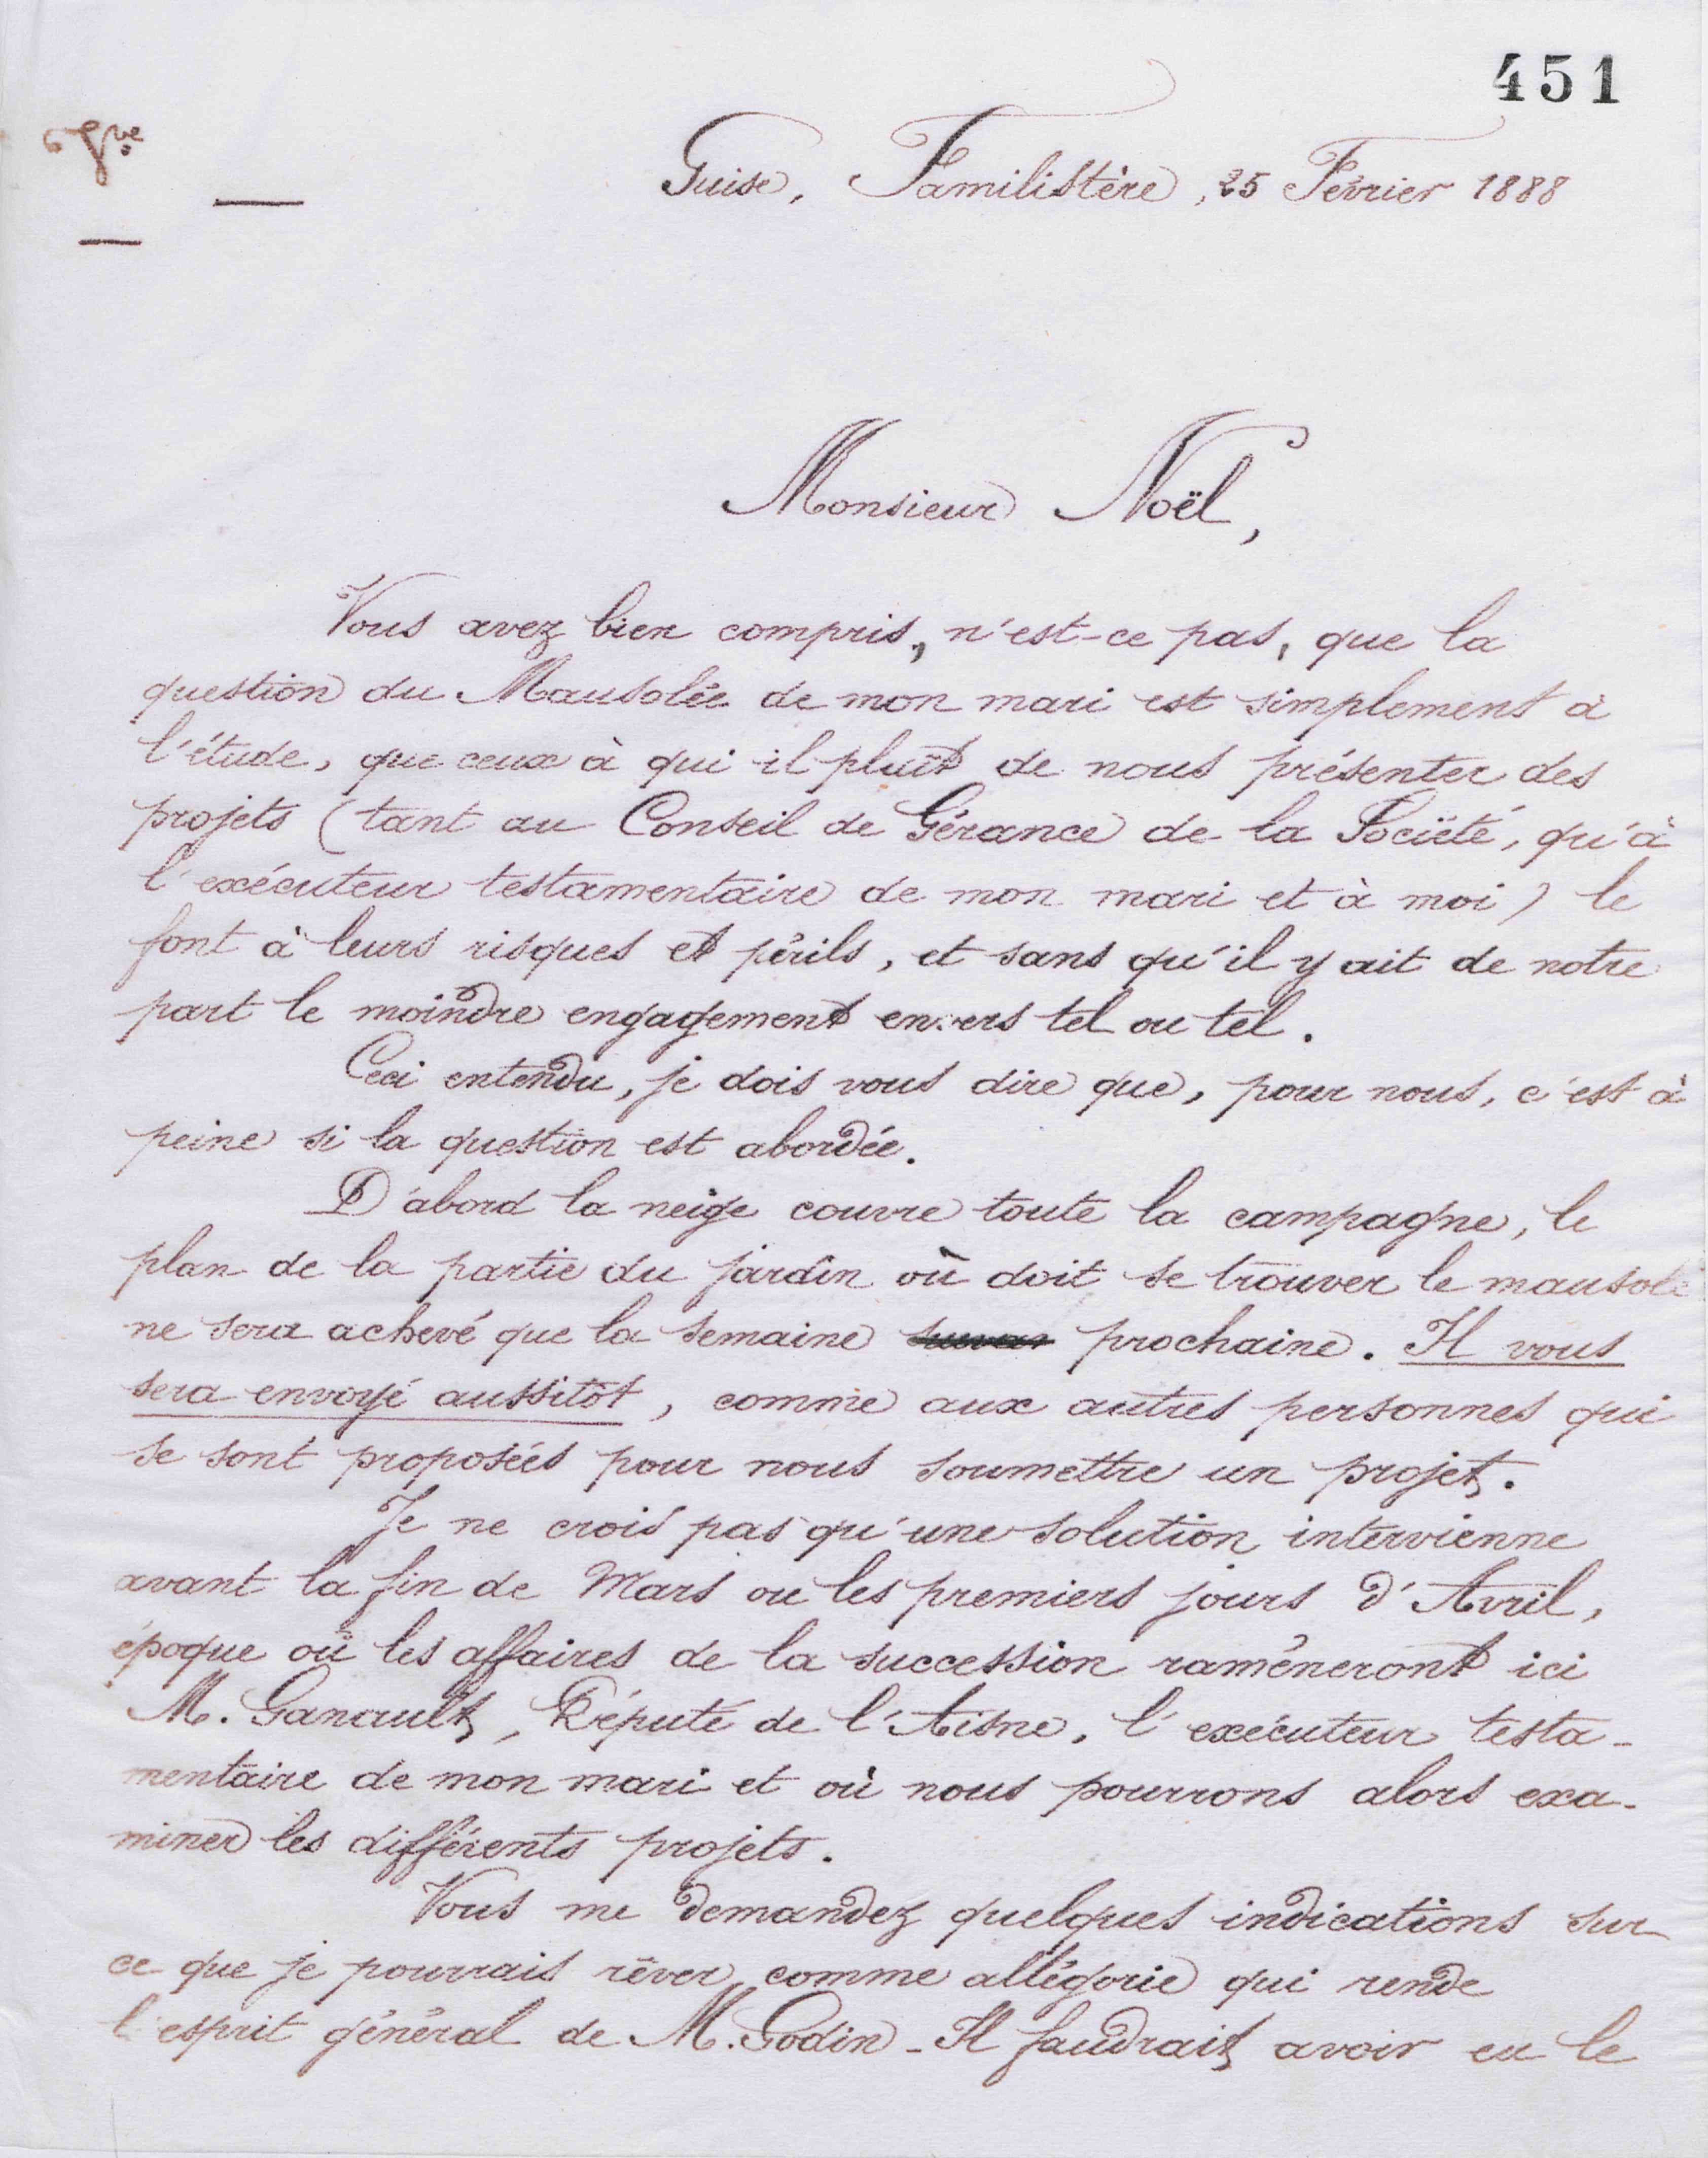 451
Guise, Familistère, 25 Février 1888
Monsieur Noël,
Vous avez bien compris, n'est-ce pas, que la
question du Mausolée de mon mari est simplement à
l'étude, que ceux à qui il plaît de nous présenter des
projets (tant au Conseil de Gérance de la Société, qu'à
l'exécuteur testamentaire de mon mari et à moi) le
font à leurs risques et périls, et sans qu'il y ait de notre
part le moindre engagement envers tel ou tel.
Ceci entendu, je dois vous dire que, pour nous, c'est à
peine si la question est abordée.
D'abord la neige couvre toute la campagne, le
plan de la partie du jardin où doit se trouver le mausolé
ne sera achevé que la semaine prochaine. Il vous
sera envoyé aussitôt, comme aux autres personnes qui
se sont proposées pour nous soumettre un projet.
Je ne crois pas qu'une solution intervienne
avant la fin de Mars ou les premiers jours d'Avril,
époque où les affaires de la succession ramèneront ici
M. Ganault, Député de l'Aisne, l'exécuteur testa-
mentaire de mon mari et où nous pourrons alors exa-
miner les différents projets.
Vous me demandez quelques indications sur
ce que je pourrais rêver comme allégorie qui rende
l'esprit général de M. Godin - Il faudrait avoir eu le